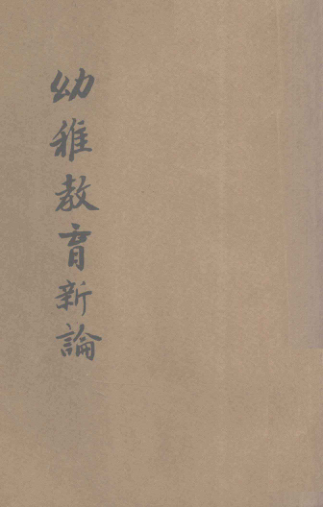 幼稚教育新論